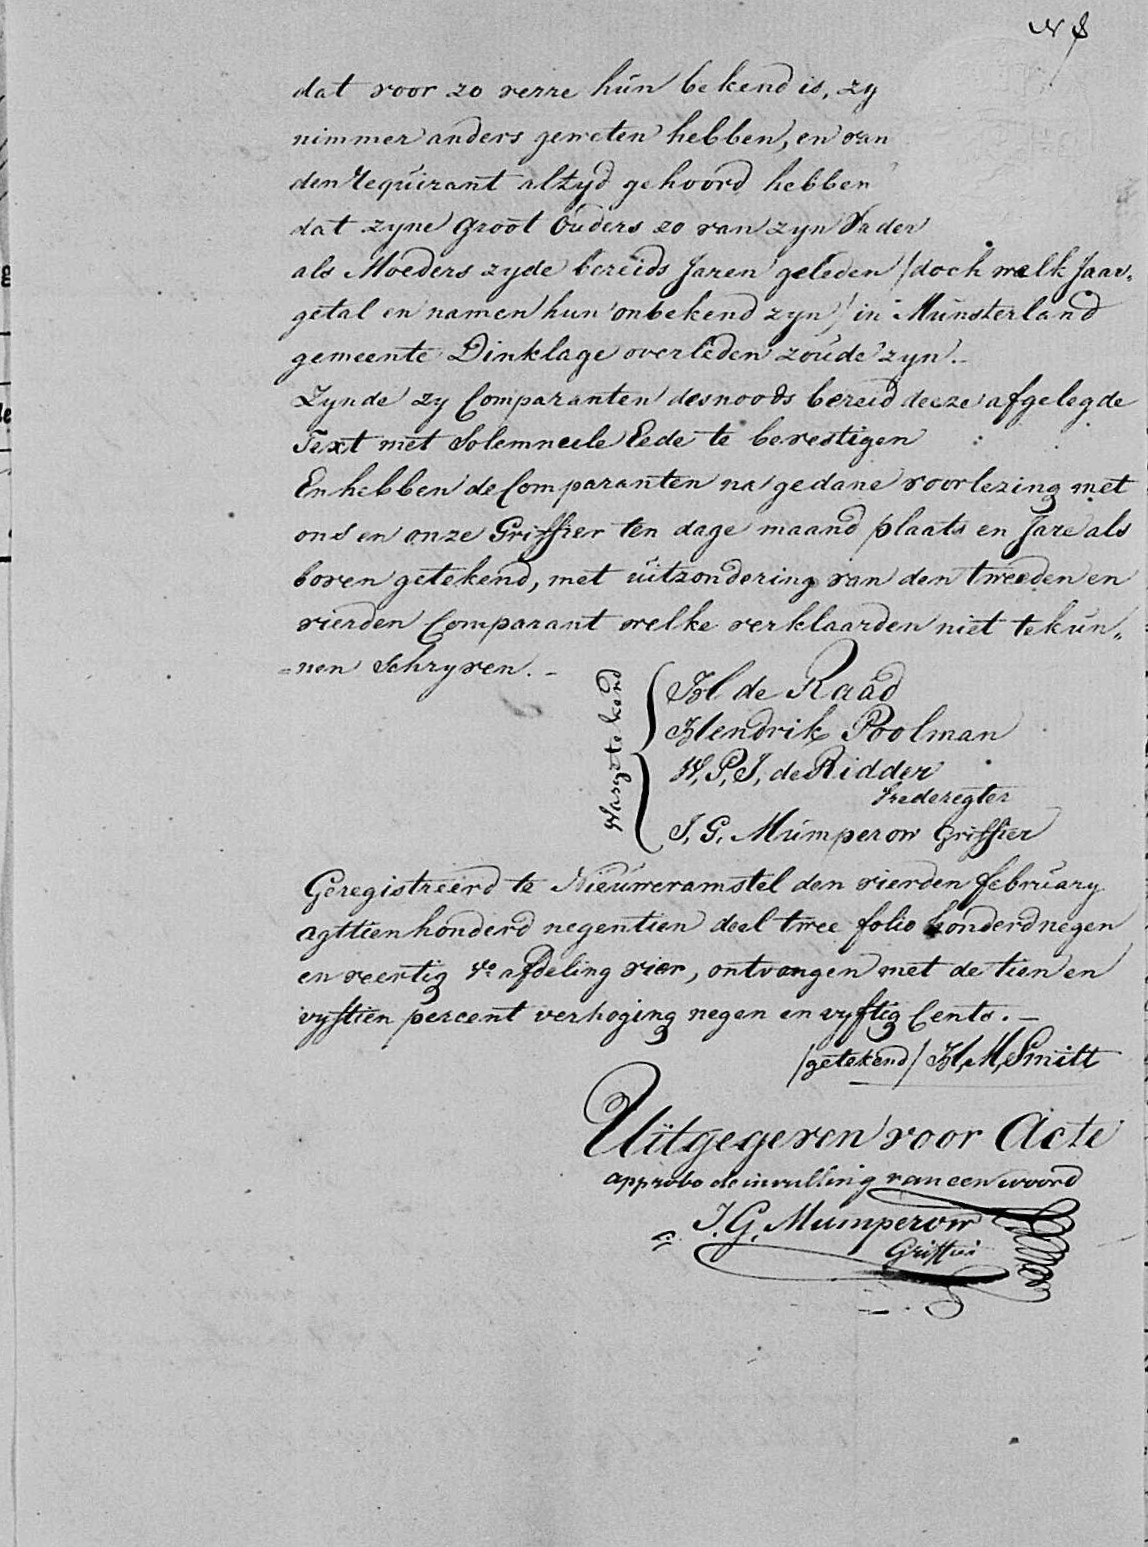 dat voor zo verre hun bekend is, zy
nimmer anders geweten hebben, en van
den Requirant altyd gehoord hebben
dat zyne Groot Ouders zo van zyn Vader
als Moeders zyde bereids Jaren geleden /doch welk Jaar„
getal en namen hun onbekend zyn/ in Munsterland
gemeente Dinklage overleden zoude zyn.–
Zynde zy Comparanten desnoods bereid deeze afgelegde
Text met Solemneele Eede te bevestigen
En hebben de Comparanten na gedane voorlezing met
ons en onze Griffier ten dage maand plaats en Jare als
boven getekend, met uitzondering van den tweeden en
vierden Comparant welke verklaarden niet te kun„
=nen Schryven.–
Was getekend
H de Raad
Hendrik Poolman
W, P, J, de Ridder
Vrederegter
J, G, Mumperow Griffier
Geregistreerd te Nieuweramstel den vierden february
agttien honderd negentien deel twee folio honderd negen
en veertig vo. afdeling vier, ontvangen met de tien en
vyftien percent verhoging negen en vyftig Cents.–
/getekend/ H, M, Smitt
Uitgegeven voor Acte
approbo de invulling van een woord
J. G. Mumperow
Griffier